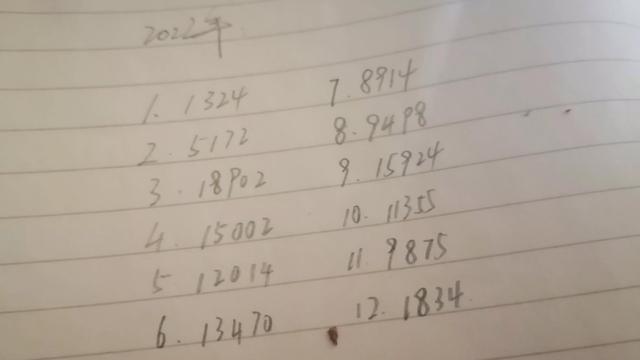 2022年
1. 1324
2. 5172
3. 18902
4. 15002
5 12014
6. 13470
7. 8914
8. 9498
9. 15924
10. 11355
11 9875
12. 1834